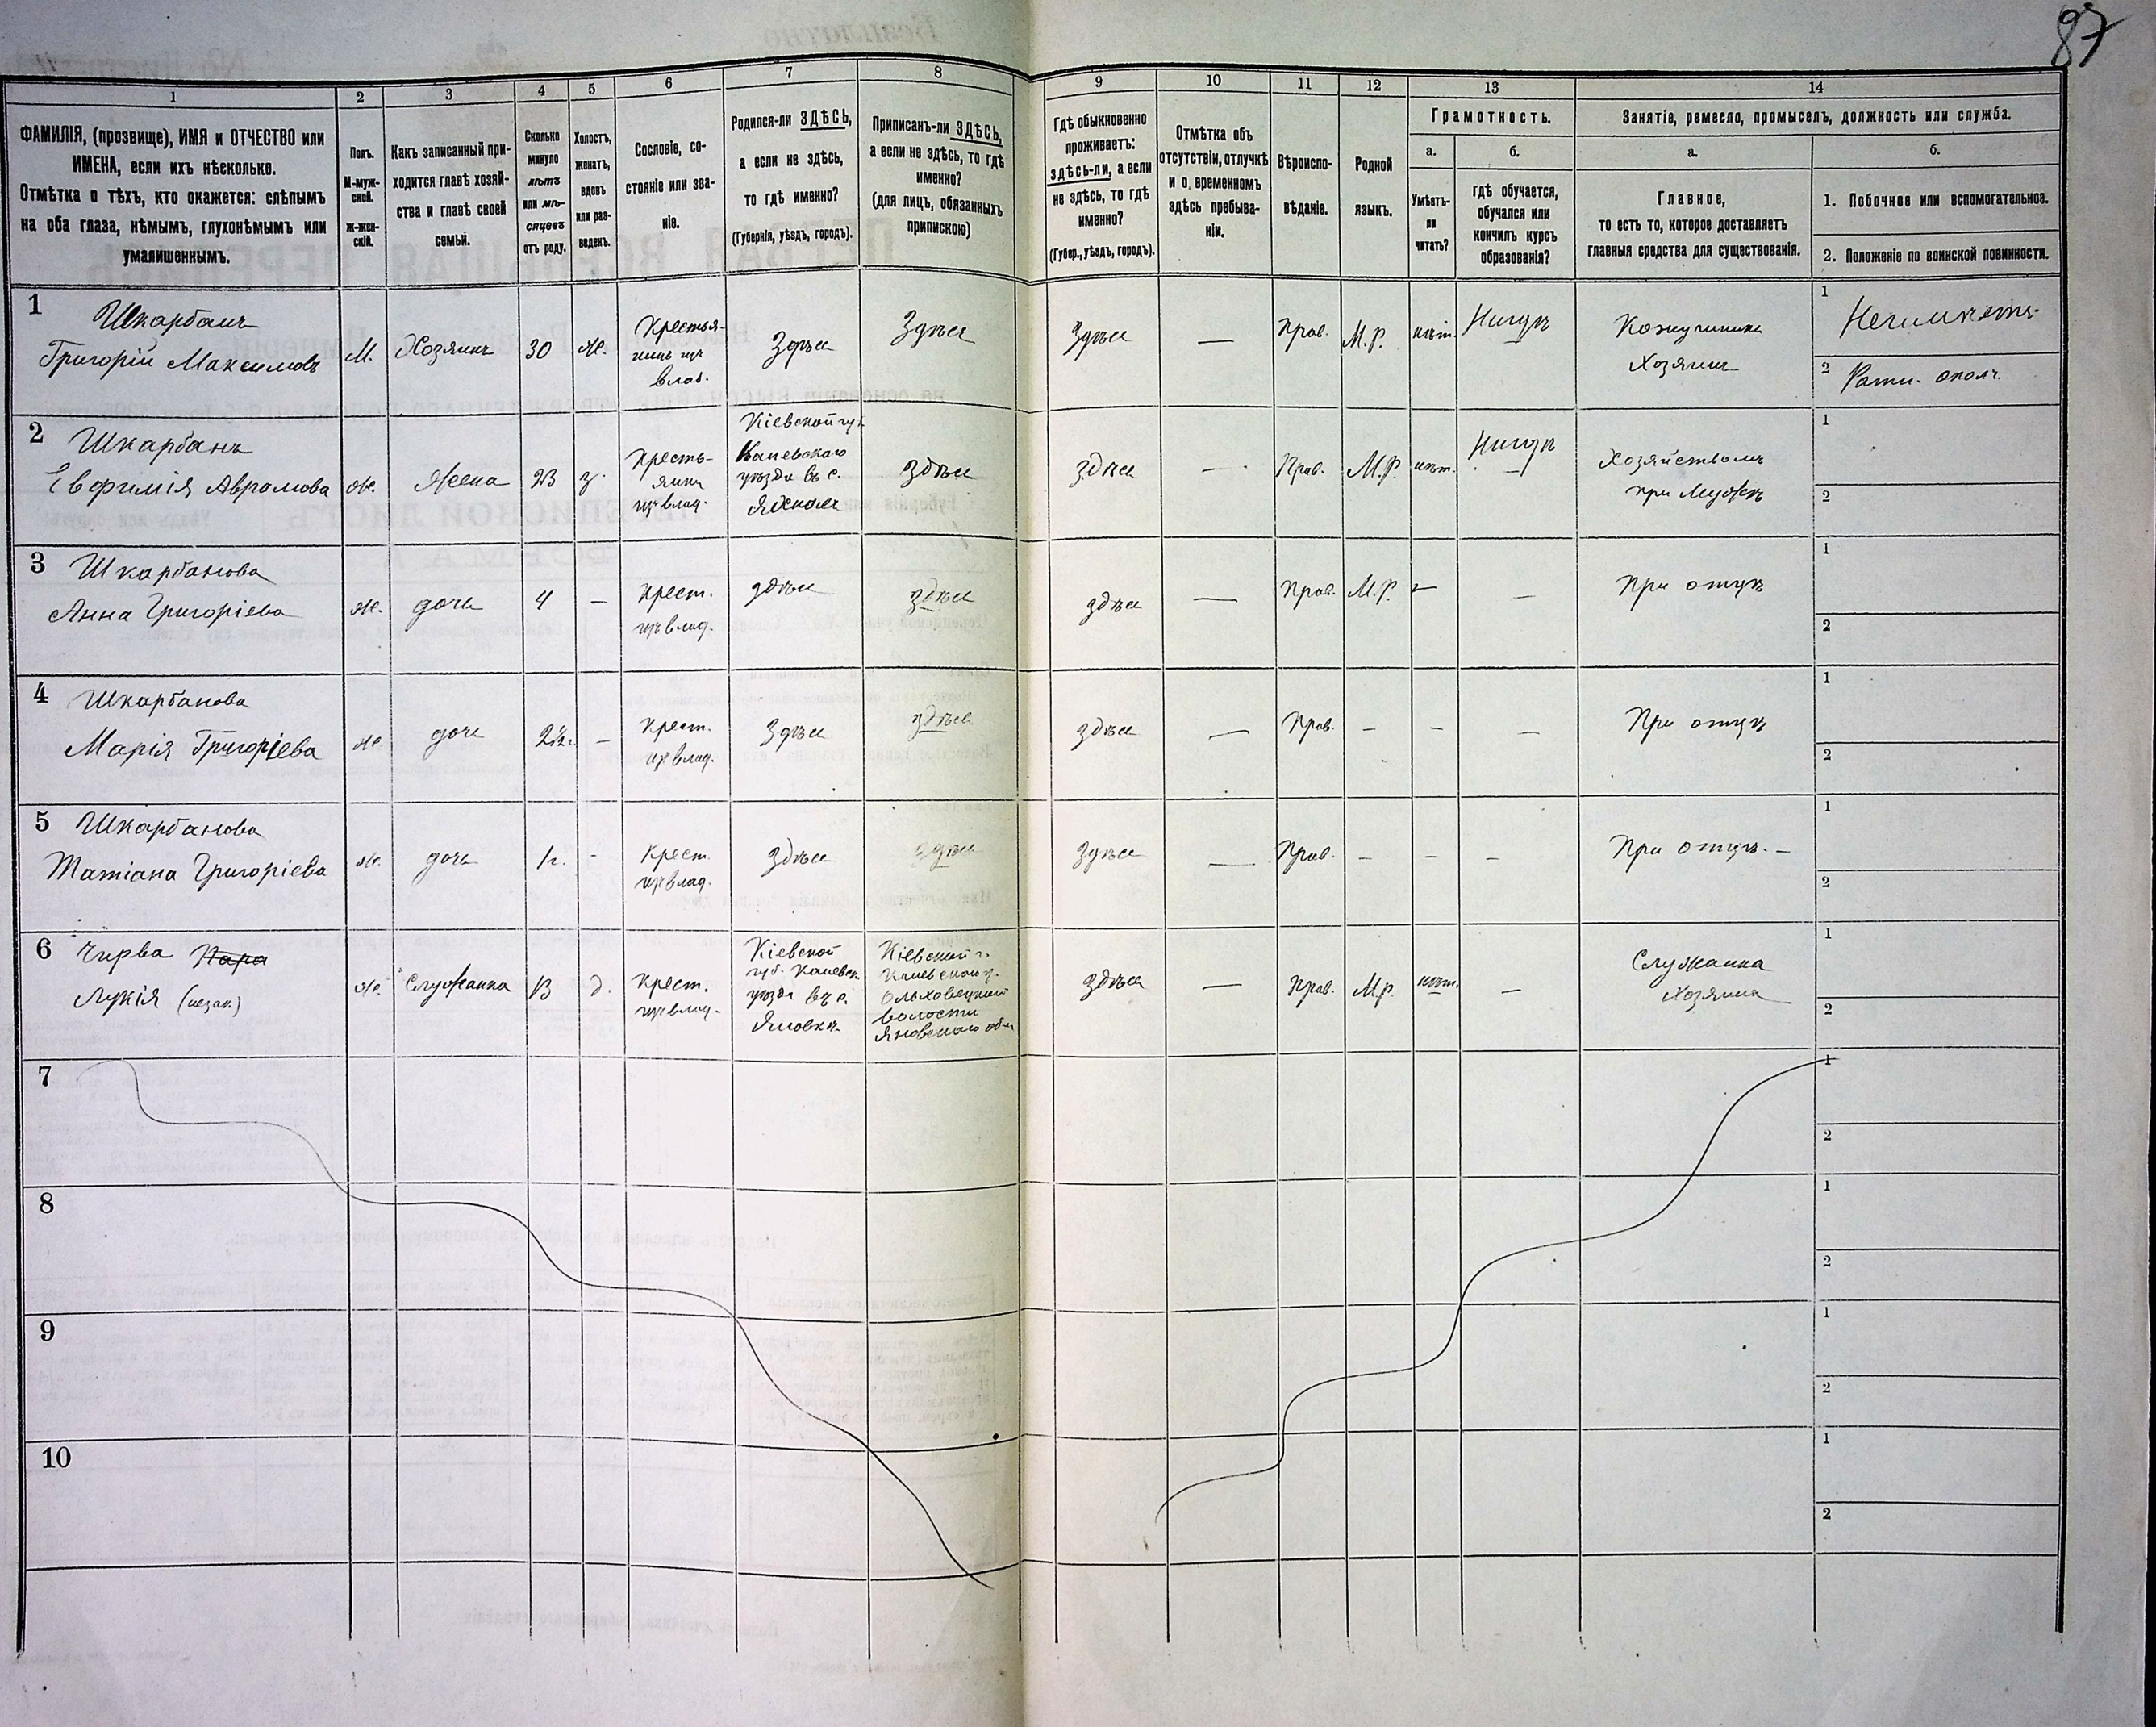 87
1
2
3
4
5
6
7
8
9
10
11
12
13
14
ФАМИЛІЯ, (прозвище), ИМЯ и ОТЧЕСТВО или
ИМЕНА, если ихъ нѣсколько.
Отмѣтка о тѣхъ, кто окажется: слѣпымъ
на оба глаза, нѣмымъ, глухонѣмымъ или
умалишеннымъ.
Полъ.
М-муж-
ской.
ж-жен-
скій.
Какъ записанный при-
ходится главѣ хозяй-
ства и главѣ своей
семьи.
Сколько
минуло
лѣтъ
или мѣ-
сяцевъ
отъ роду.
Холостъ,
женатъ,
вдовъ
или раз-
веденъ.
Сословіе, со-
стояніе или зва-
ніе.
Родился-ли ЗДѢСЬ,
а если не здѣсь,
то гдѣ именно?
(Губернія, уѣздъ, городъ).
Приписанъ-ли ЗДѢСЬ,
а если не здѣсь, то гдѣ
именно?
(для лицъ, обязанныхъ
припискою)
Гдѣ обыкновенно
проживаетъ:
здѣсь-ли, а если
не здѣсь, то гдѣ
именно?
(Губер., уѣздъ, городъ).
Отмѣтка объ
отсутствіи, отлучкѣ
и о временномъ
здѣсь пребыва-
ніи.
Вѣроиспо-
вѣданіе.
Родной
языкъ.
Грамотность.
а.
Умѣетъ-
ли
читать?
б.
гдѣ обучается,
обучался или
кончилъ курсъ
образованія?
Занятіе, ремесло, промыселъ, должность или служба.
а.
Главное,
то есть то, которое доставляетъ
главныя средства для существованія.
б.
1. Побочное или вспомогательное.
2. Положеніе по воинской повинности.
1
Шкарбанъ
Григорій Максимовъ
М.
Хозяинъ
30
ж.
Крестья-
нинъ изъ
влад.
Здѣсь
Здѣсь
Здѣсь
—
Прав.
М.Р.
нѣт.
Нигдѣ
Хозяинъ
1
2 Ратн. ополч.
2
Шкарбанъ
Евфимія Аврамова
ж.
Жена
23
з.
Кресть-
янка
изъ влад.
Кіевской гу.
Каневскаго
уѣзда въ с.
здѣсь
здѣсь
—
Прав.
М.Р.
нѣт.
Нигдѣ
Хозяйствомъ
при мужѣ
1
2
3
Шкарбанова
Анна Григоріева
ж.
дочь
4
—
Крест.
изъ влад.
здѣсь
здѣсь
здѣсь
—
Прав.
М.Р.
—
—
При отцѣ
1
2
4
Шкарбанова
Марія Григоріева
ж.
дочь
2½г.
—
Крест.
изъ влад.
Здѣсь
здѣсь
здѣсь
—
Прав.
—
—
—
При отцѣ
1
2
5
Шкарбанова
Татіана Григоріева
ж.
дочь
1г.
-
Крест.
изъ влад.
здѣсь
здѣсь
здѣсь
—
Прав.
—
—
—
При отцѣ. —
1
2
6
Чирва
Лукія (незак.)
ж.
Служанка
13
д.
Крест.
изъ влад.
Кіевской
губ. Каневск.
уѣзда въ с.
Яновкѣ
Кіевской г.
Каневскаго у.
Ольховецкой
волости
Яновскаго общ
здѣсь
—
Прав.
М.Р.
нѣт.
—
Служанка
Хозяина
1
2
7
1
2
8
1
2
9
1
2
10
1
2